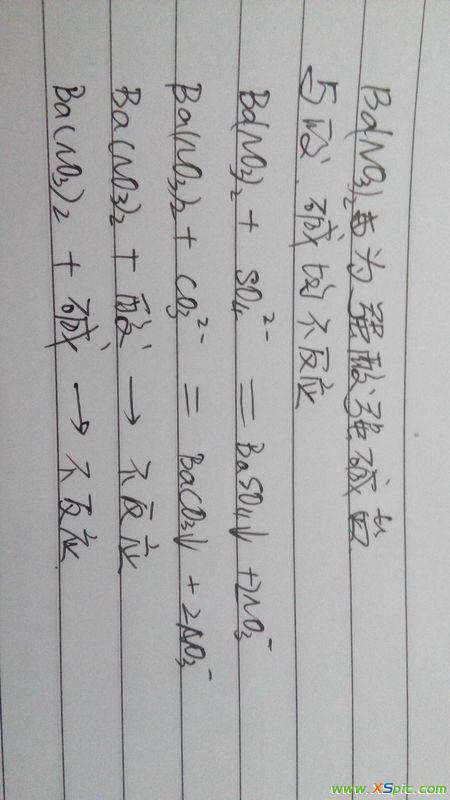 Ba(NO3)2为强酸强碱盐
与酸 碱均不反应
Ba(NO3)2 + SO4²⁻ = BaSO4↓ + 2NO3⁻
Ba(NO3)2 + CO3²⁻ = BaCO3↓ + 2NO3⁻
Ba(NO3)2 + 酸 → 不反应
Ba(NO3)2 + 碱 → 不反应
www.XSpic.com